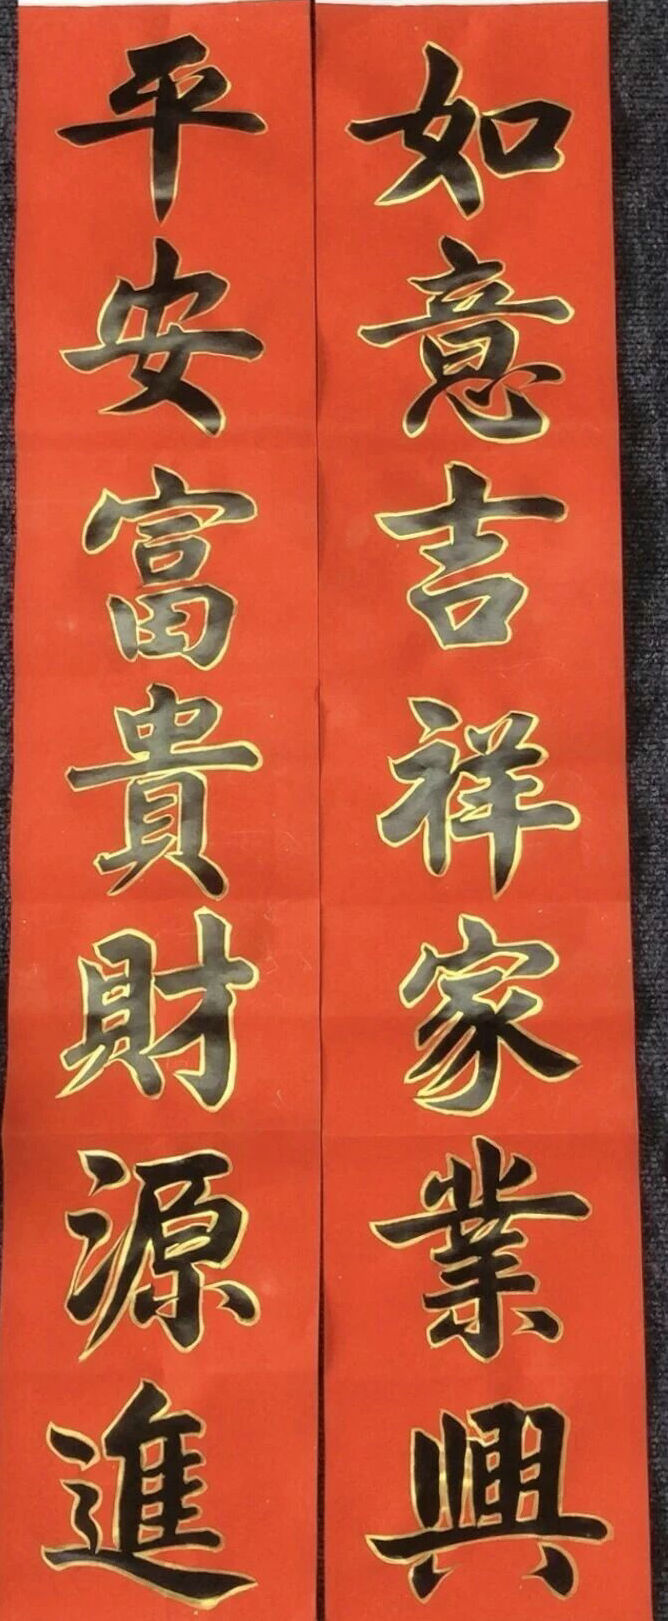 如意吉祥家業興
平安富貴財源進